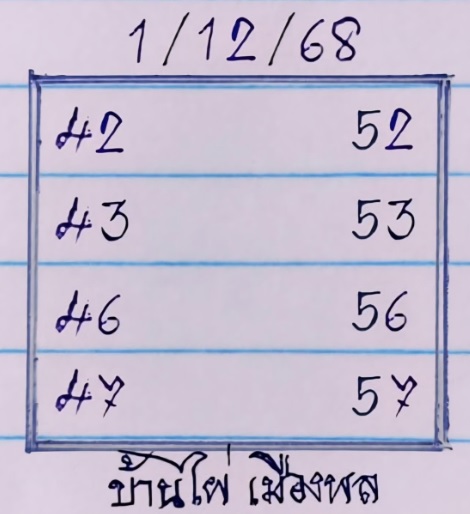 1/12/68
42 52
43 53
46 56
47 57
บ้านไผ่ เมืองพล